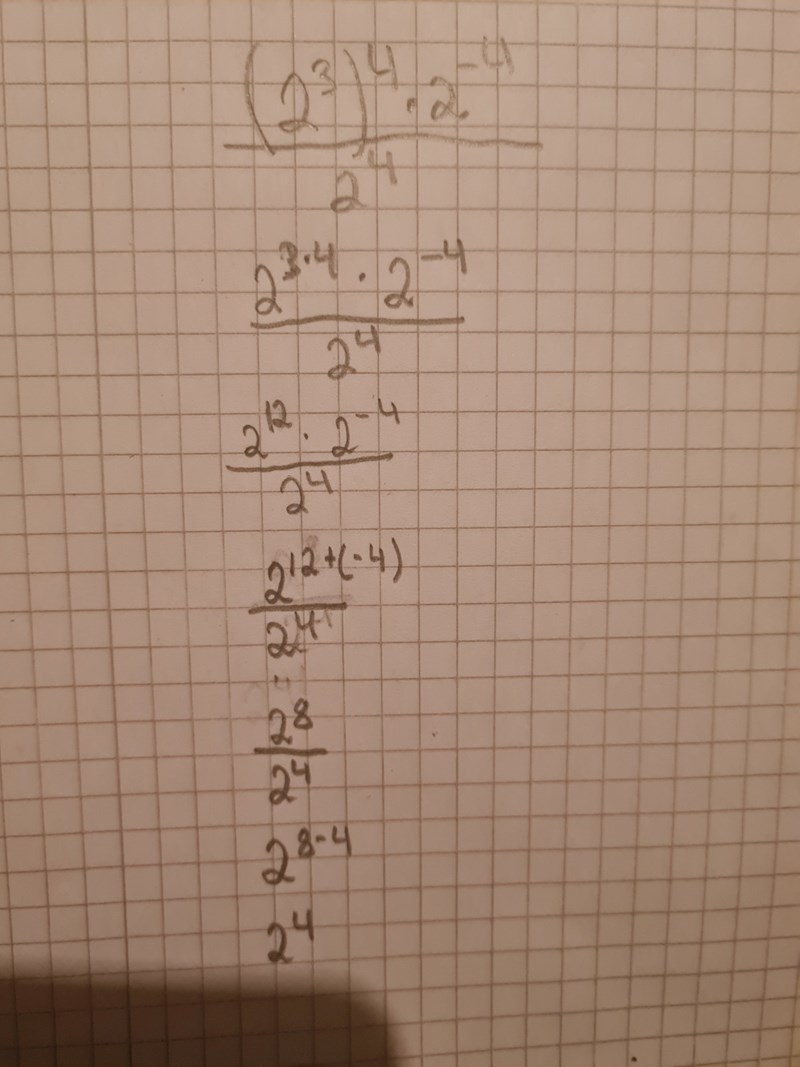 (2³)⁴ · 2⁻⁴
2⁴
2³·⁴ · 2⁻⁴
2⁴
2¹² · 2⁻⁴
2⁴
2¹²⁺⁽⁻⁴⁾
2⁴
=
2⁸
2⁴
2⁸⁻⁴
2⁴